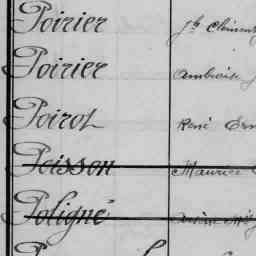 Poirier Jh Clément
Poirier Ambroise
Poirot René Ern
Poisson Maurice
Poligné